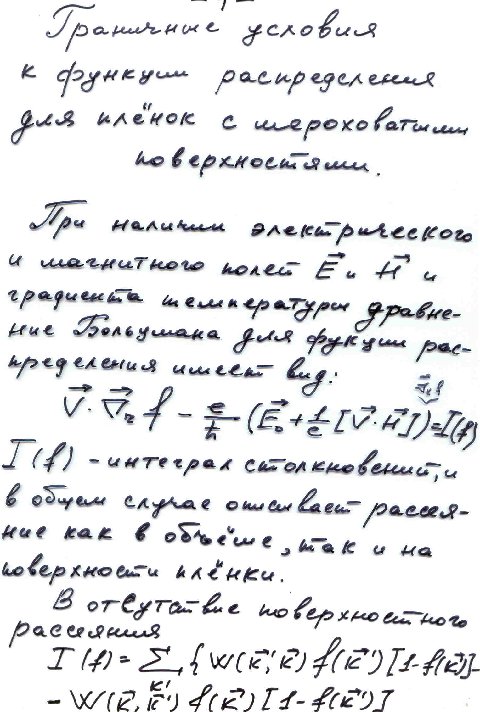 Граничные условия
к функции распределения
для плёнок с шероховатыми
поверхностями.
При наличии электрического
и магнитного полей E⃗ и H⃗ и
градиента температуры уравне-
ние Больцмана для фукции рас-
пределения имеет вид:
V⃗·∇⃗ᵣ f − e/ħ (E⃗₀ + 1/c [V⃗·H⃗]) = I(f)
I(f) - интеграл столкновений, и
в общем случае описывает рассея-
ние как в объёме, так и на
поверхности плёнки.
В отсутствие поверхностного
рассеяния
I(f) = Σ {W(k⃗', k⃗) f(k⃗') [1-f(k⃗)]-
k'
- W(k⃗, k⃗') f(k⃗) [1-f(k⃗')]